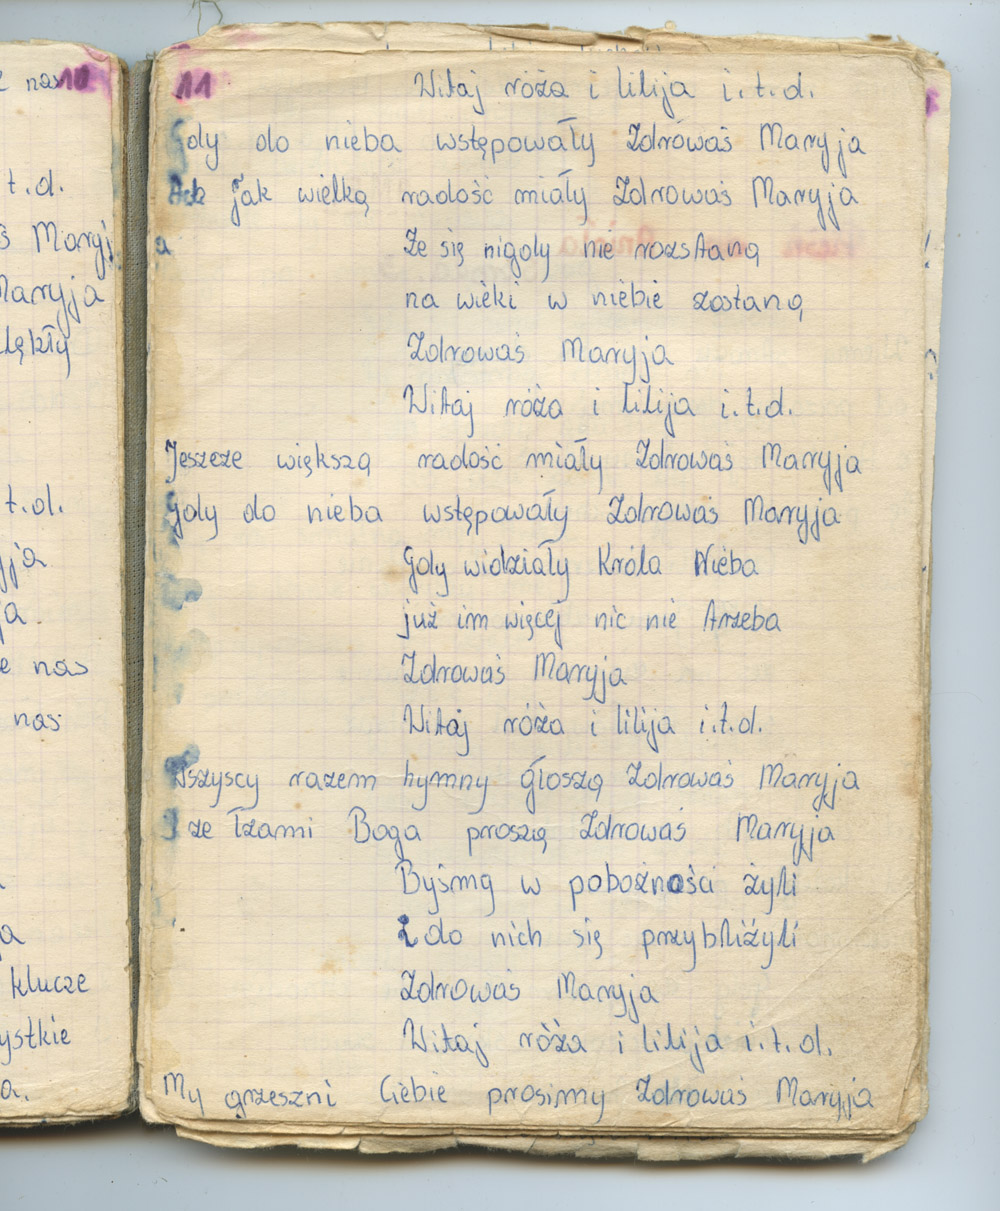 nas 10
t.d.
ś Maryj
Maryja
lękły
t.d.
yja
ja
e nas
nas
a
klucze
ystkie
a.
11
Witaj róża i lilija i.t.d.
Gdy do nieba wstępowały Zdrowaś Maryja
Ach Jak wielką radość miały Zdrowaś Maryja
a Że się nigdy nie rozstaną
na wieki w niebie zostaną
Zdrowaś Maryja
Witaj róża i lilija i.t.d.
Jeszcze większą radość miały Zdrowaś Maryja
Gdy do nieba wstępowały Zdrowaś Maryja
Gdy widziały Króla Nieba
już im więcej nic nie trzeba
Zdrowaś Maryja
Witaj róża i lilija i.t.d.
Wszyscy razem hymny głoszą Zdrowaś Maryja
I ze łzami Boga proszą Zdrowaś Maryja
Byśmy w pobożności żyli
I do nich się przybliżyli
Zdrowaś Maryja
Witaj róża i lilija i.t.d.
My grzeszni Ciebie prosimy Zdrowaś Maryja